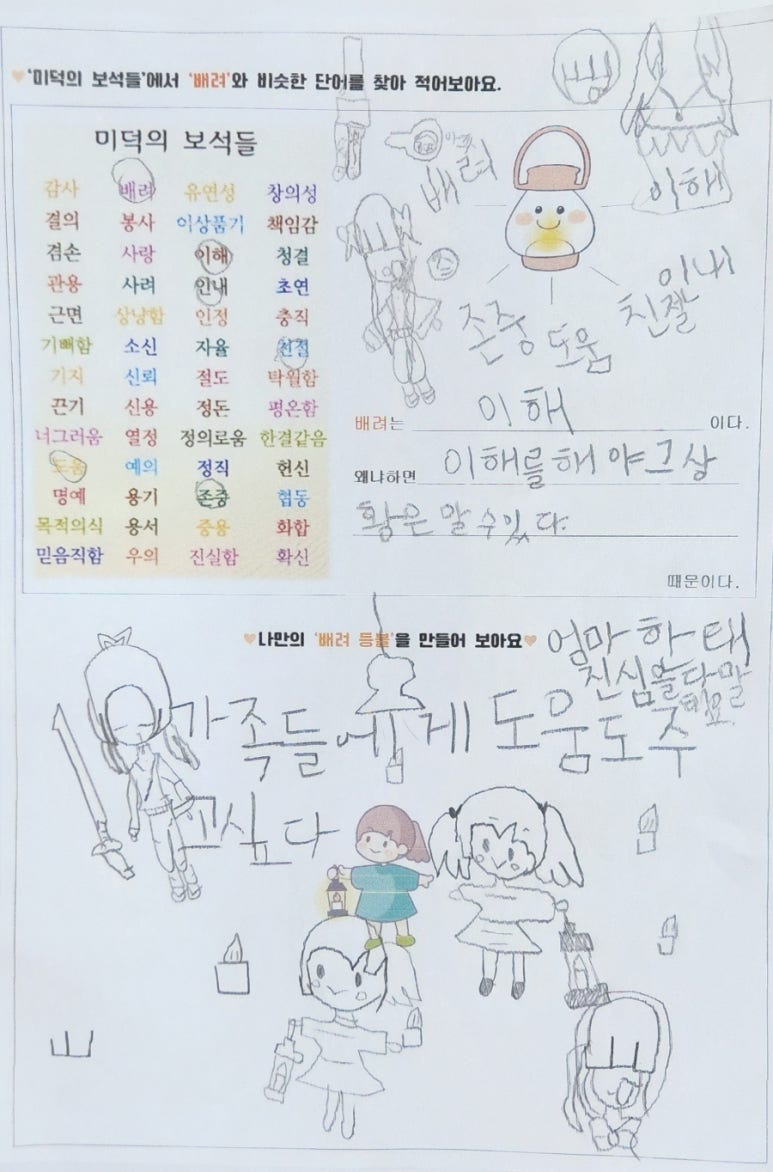 ♥'미덕의 보석들'에서 '배려'와 비슷한 단어를 찾아 적어보아요.
미덕의 보석들
감사 배려 유연성 창의성
결의 봉사 이상품기 책임감
겸손 사랑 이해 청결
관용 사려 인내 초연
근면 상냥함 인정 충직
기뻐함 소신 자율 친절
기지 신뢰 절도 탁월함
끈기 신용 정돈 평온함
너그러움 열정 정의로움 한결같음
도움 예의 정직 헌신
명예 용기 존중 협동
목적의식 용서 중용 화합
믿음직함 우의 진실함 확신
배려
이해
이내
친절
존중
도움
배려는 이해 이다.
왜냐하면 이해를해야그상
황은 말 수있다.
때문이다.
♥나만의 '배려 등불'을 만들어 보아요♥
엄마 하태
진심을다말
가족들에게 도움도주
고싶다